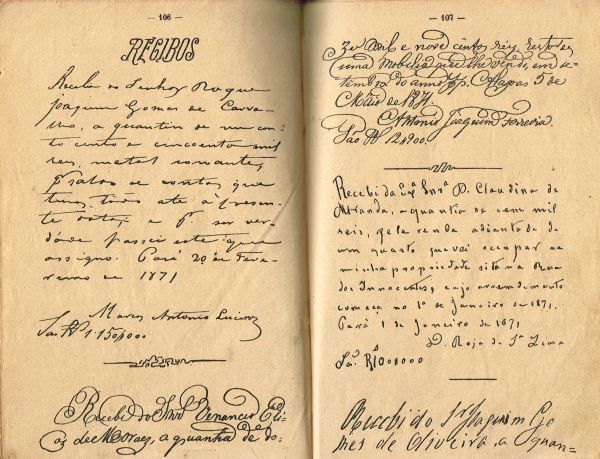 — 106 —
RECIBOS
Recebi do Senhor Roque
Joaquim Gomes de Carva-
lho, a quantia de um con-
to cento e cincoenta mil
reis, metal sonante,
saldos de contas que
tenho tido até à presen-
te data; e p.r ser ver-
dade passei este que
assigno. Pará 20 de Feve-
reiro de 1871
Marcos Antonio
São R$ 1.150,000
Recebi do Snr. Venancio Eli-
as de Moraes, a quantia de do-
— 107 —
ze mil e nove centos reis, resto de
uma mobilia que lhe vendi, em se-
tembro do anno pp. Alagoas 5 de
Maio de 1871.
Antonio Joaquim Ferreira.
São R$ 12,900.
Recebi da Ex.ª Snr.ª D. Claudina de
Miranda, a quantia de cem mil
reis, pela renda adiantada de
um quarto que vai occupar na
minha propriedade sita na Rua
dos Innocentes, cujo arrendamento
começa no 1º de Janeiro de 1871.
Pará 1 de Janeiro de 1871
D. Roja de Sª Lima
São R$ 100,000
Recebi do Sr. Joaquim Go-
mes de Oliveira, a quan-